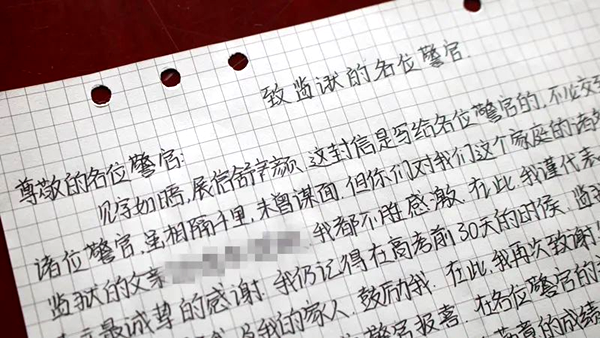 致监狱的各位警官
尊敬的各位警官:
见字如晤,展信舒颜,这封信是写给各位警官的,不
诸位警官,虽相隔千里,未曾谋面,但你们对我们这个家庭的
监狱的父亲 我都不胜感激.在此,我谨代表
最诚挚的感谢.我仍记得在高考前30天的时候,监
我的家人,鼓励我.在此,我再次致谢!
警官报喜.在各位警官的
的成绩